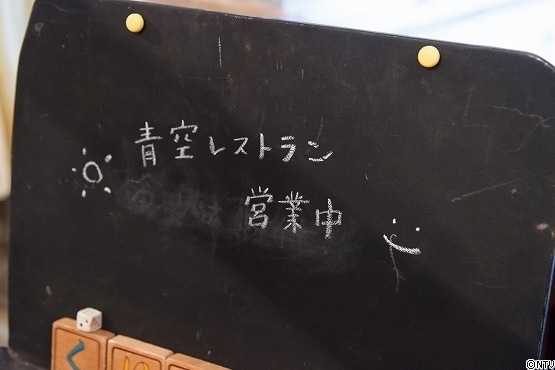 青空レストラン
営業中
く
©NTV